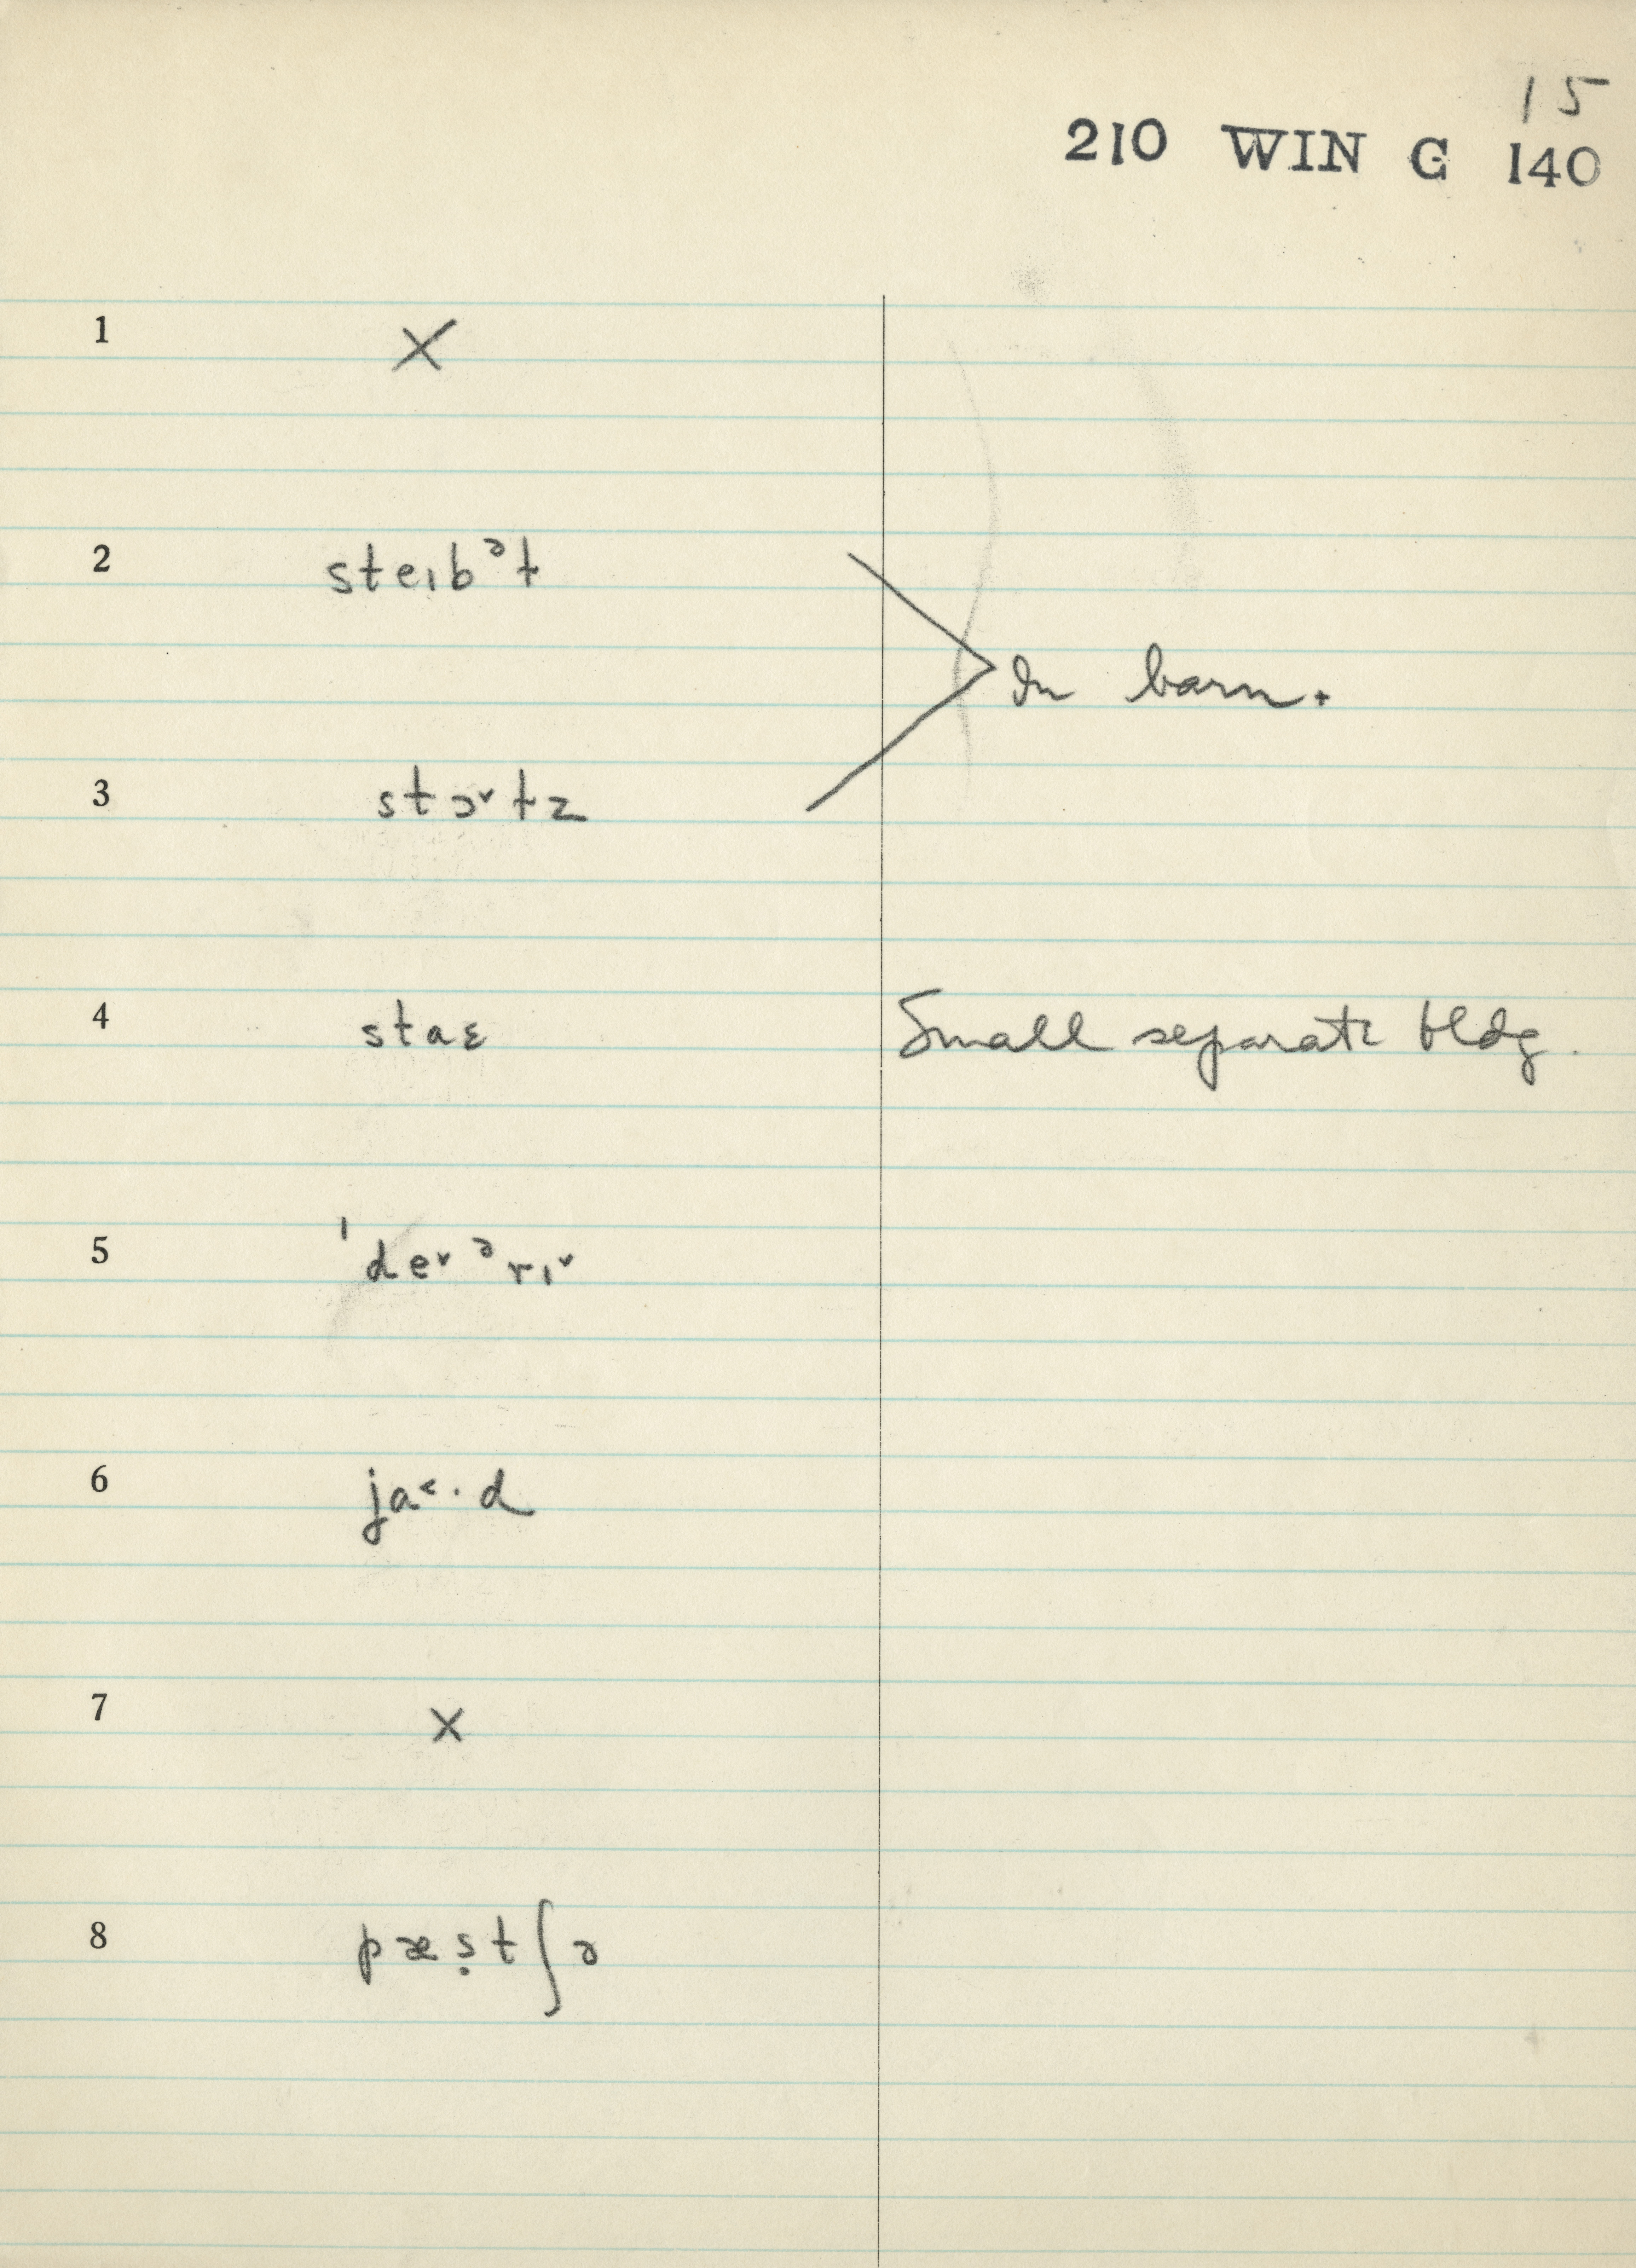 15
210 WIN G 140
1 X
2 steɪbᵊɫ
In barn.
3 stɔ˅ɫz
4 staɛ Small separate bldg.
5 ˈde˅ᵊrɪ˅
6 ja˂·d
7 X
8 pæṣtʃə